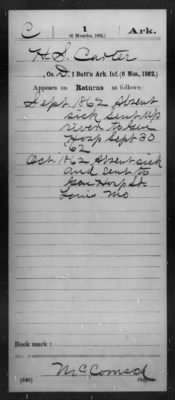 C 1 Ark.
(6 Months, 1862.)
H. S. Carter
, Co. D, 1 Batt'n Ark. Inf. (6 Mos., 1862.)
Appears on Returns as follows:
Sept 1862, Absent
sick sent up
river to Gen
Hosp Sept 30
62
Oct 1862, Absent sick
and sent to
Gen Hosp St.
Louis Mo
Book mark:
(546)
Copyist.